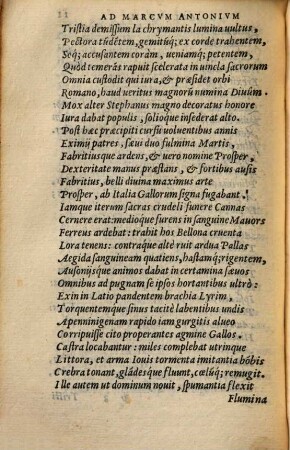 AD MARCVM ANTONIVM
Tristia demissum la chrymantis lumina uultus,
Pectora tūdētem, gemitúq; ex corde trahentem,
Seq; accusantem coràm, ueniamq; petentem,
Quod temerás rapuit scelerata in uincla sacrorum
Omnia custodit qui iura, & præsidet orbi
Romano, haud ueritus magnorū numina Diuûm.
Mox alter Stephanus magno decoratus honore
Iura dabat populis, solioque insederat alto.
Post hæc præcipiti cursu uoluentibus annis
Eximij patres, sæui duo fulmina Martis,
Fabritiusque ardens, & uero nomine Prosper,
Dexteritate manus præstans, & fortibus ausis
Fabritius, belli diuina maximus arte
Prosper, ab Italia Gallorum signa fugabant.
Iamque iterum sacras crudeli funere Cannas
Cernere erat: medioque furens in sanguine Mauors
Ferreus ardebat: trahit hos Bellona cruenta
Lora tenens: contraque altè ruit ardua Pallas
Aegida sanguineam quatiens, hastamq; rigentem,
Ausonijsque animos dabat in certamina sæuos
Omnibus ad pugnam se ipsos hortantibus ultrò:
Exin in Latio pandentem brachia Lyrim,
Torquentemque sinus tacitè labentibus undis
Apenninigenam rapido iam gurgitis alueo
Corripuisse cito properantes agmine Gallos.
Castra locabantur: miles complebat utrinque
Littora, et arma Iouis tormenta imitantia hōbis
Crebra tonant, glādesque fluunt, cœlúq; remugit.
Ille autem ut dominum nouit, spumantia flexit
Flumina